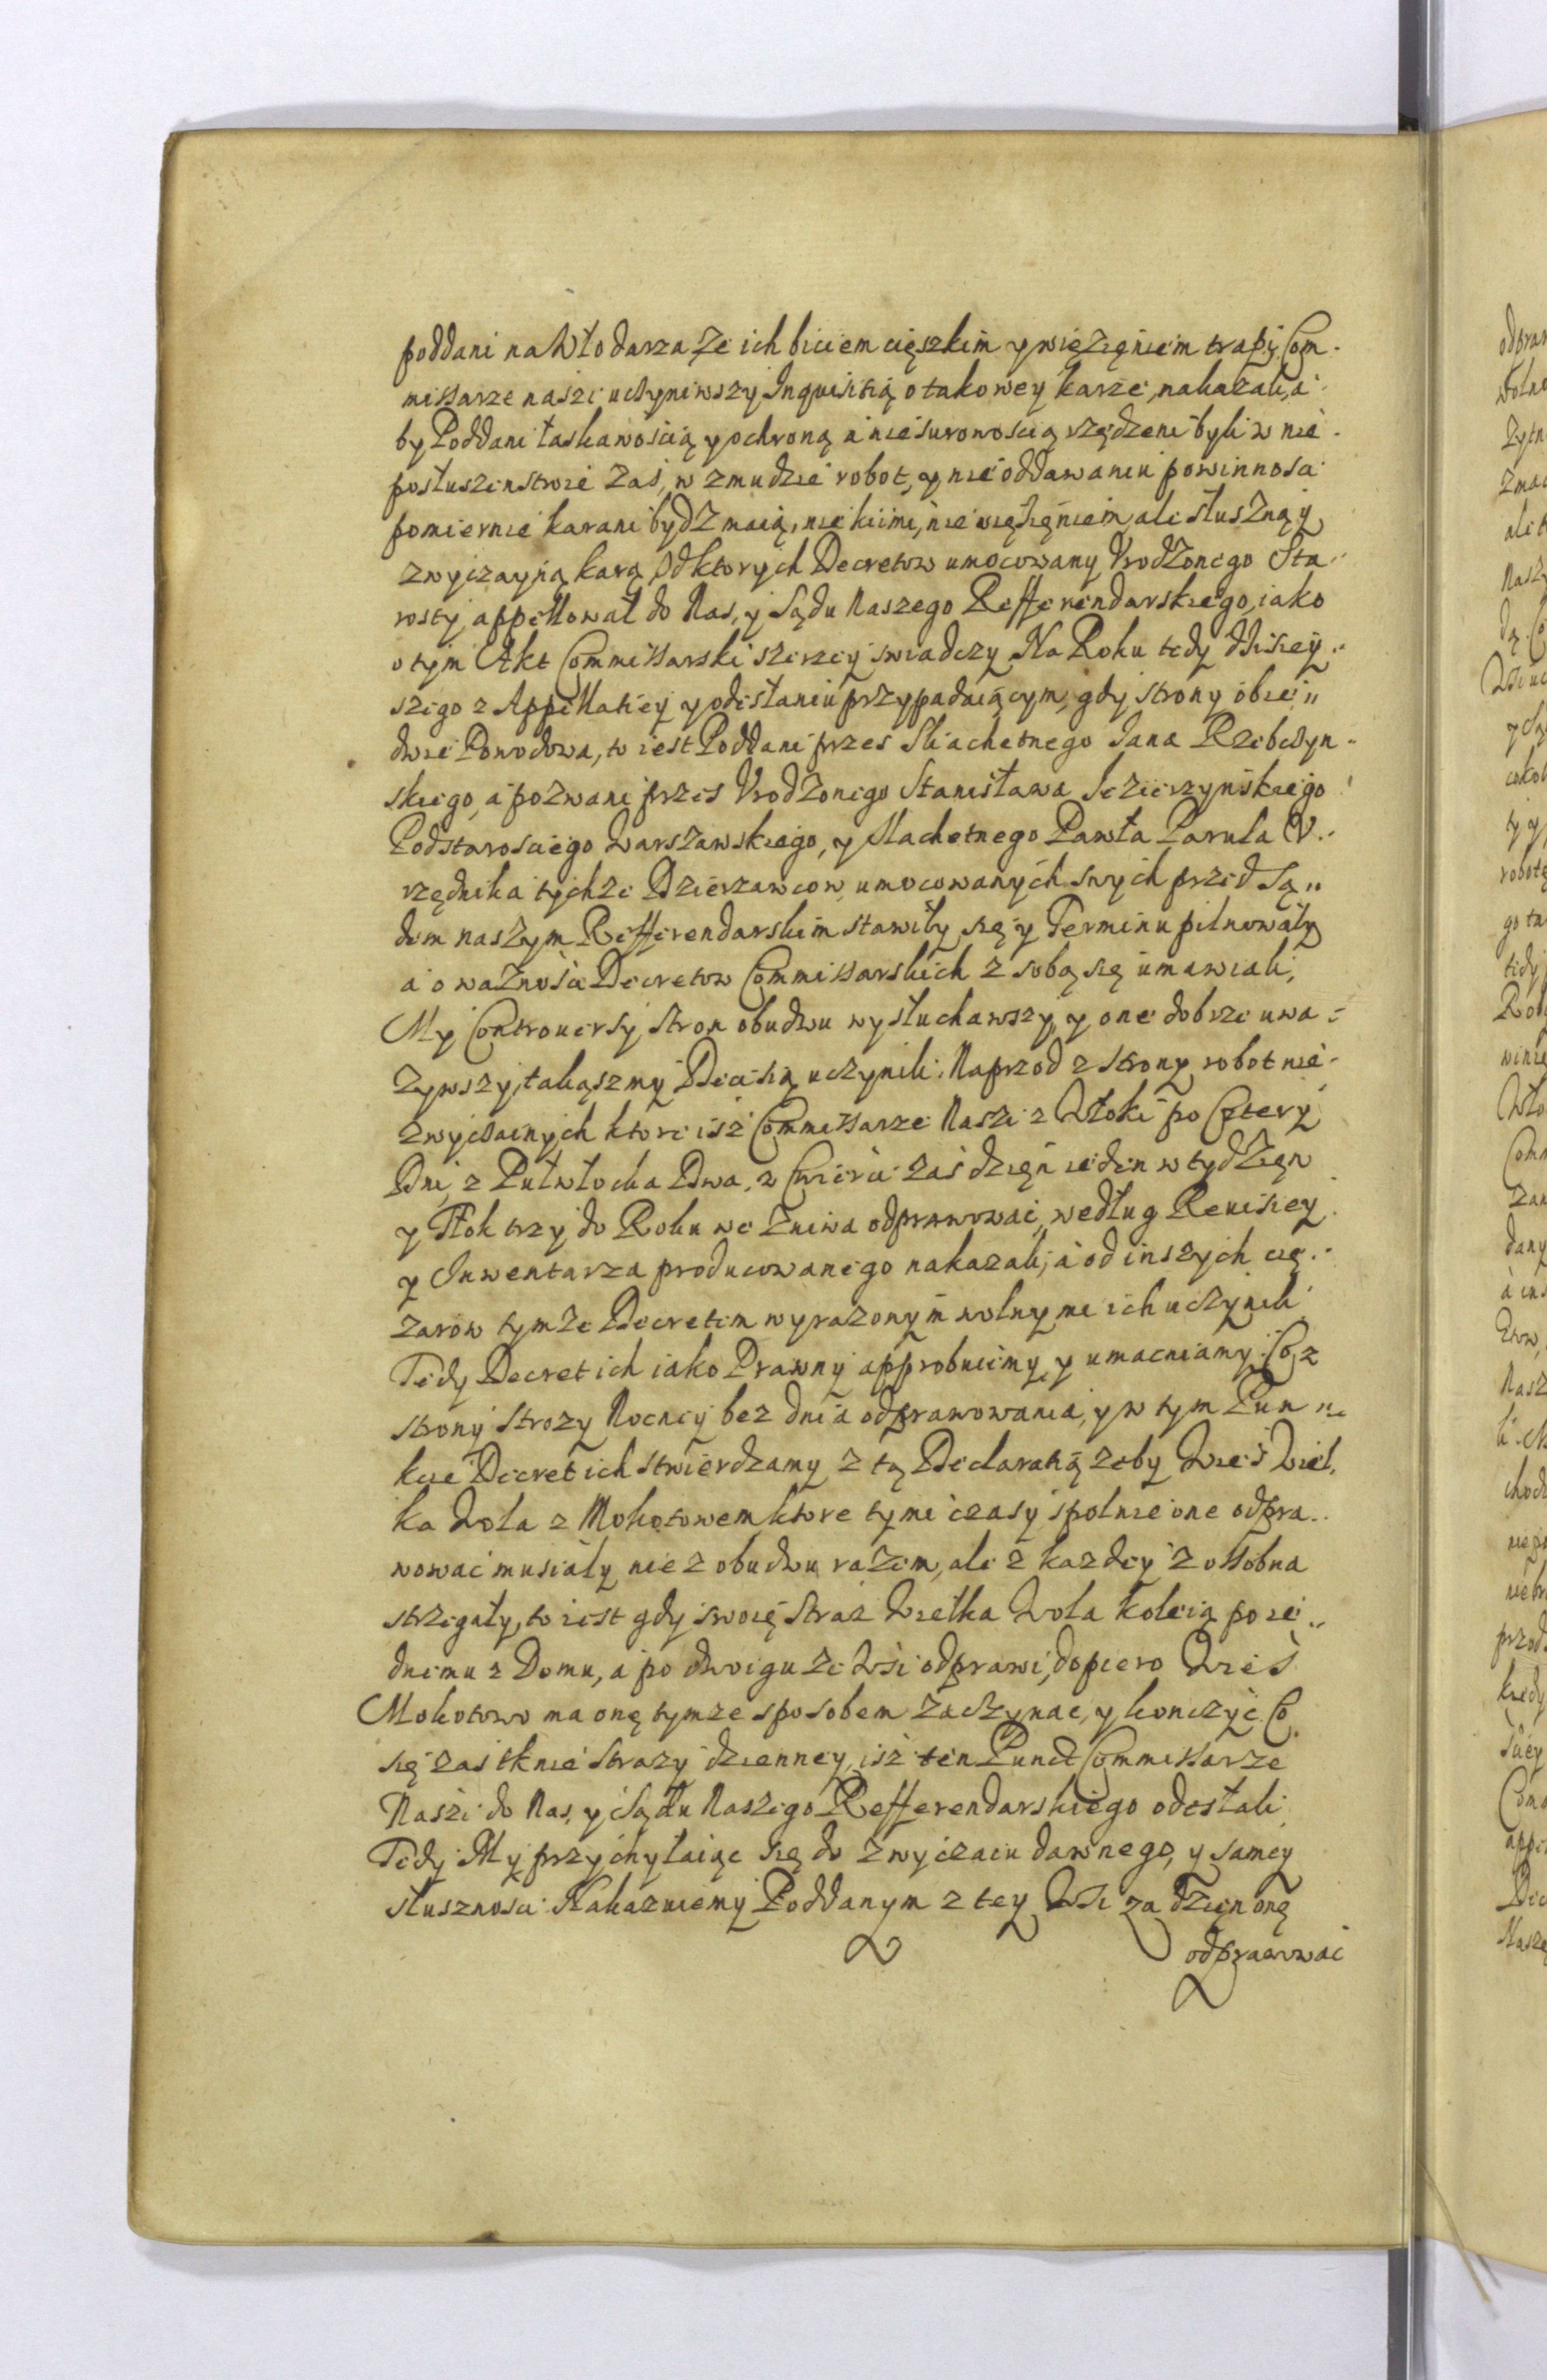 poddani na Włodarza że ich biciem cięszkim y więzięniem trapi, Com-
missarze naszi uczyniwszy Inquisitią o takowey karze, nakazali, a-
by Poddani łaskawością y ochroną a nie surowoscią rządzeni byli w nie-
posłuszenstwie zaś, w zmudzie robot, y nie oddawaniu powinnosci
pomiernie karani bydz maią, nie kiimi, nie więzięniem, ale słuszną y
zwyczayną karą, Od ktorych Decretow umocowany Vrodzonego Sta-
rosty appellował do Nas, y Sądu Naszego Refferendarskiego, iako
o tym Akt Commissarski szerzey swiadczy Na Roku tedy dzisiey-
szego z Appellatiey y odesłaniu przypadaiącym, gdy strony obie-
dwie Powodowa, to iest Poddani przes Sliachetnego Jana Rzebczyn-
skiego, a pozwani przes Vrodzonego Stanisława Jezierzynskiego
Podstarosciego Warszawskiego, y Slachetnego Pawła Parula V-
rzędnika tychże Dzierzawcow umocowanych swych przed Są-
dem naszym Refferendarskim stawiły się y Terminu pilnowały
a o ważnosci Decretow Commissarskich z sobą się umawiali,
My Controuersy stron obudwu wysłuchawszy, y one dobrze uwa-
zywszy, takąszmy Decisią uczynili. Naprzod z strony robot nie-
zwyczainych ktore isz Commissarze Naszi z Włoki po Cztery
Dni, z Pułwłocka Dwa, z Cwierci zaś dzięń ieden w tydzięń
y Tłok trzy do Roku we Zniwa odprawować, według Reuisiey
y Inwentarza producowanego nakazali, a od inszych cię-
zarow tymże Decretem wyrazonym wolnymi ich uczynili
Tedy Decret ich iako Prawny approbuiemy y umacniamy. Co z
strony Strozy Nocney bez dnia odprawowania, y w tym Pun-
kcie Decret ich stwierdzamy z tą Declaratią zeby Wieś Wiel-
ka Wola z Mokotowem ktore tymi czasy spolnie one odpra-
wować musiały nie z obudwu razem, ale z kazdey z ossobna
strzegały, to iest gdy swoię Straż Wielka Wola koleią po ie-
dnemu z Domu, a po dwoigu ze Wsi odprawi, dopiero Wieś
Mokotowo ma onę tymze sposobem zaczynac, y konczyć. Co
się zaś tknie Strazy dzienney, isz ten Punct Commissarze
Naszi do Nas, y Sądu Naszego Refferendarskiego odesłali
Tedy My przychylaiąc się do zwyczaiu dawnego, y samey
słusznosci Nakazuiemy Poddanym z tey Wsi za Dzięń onę
odprawować